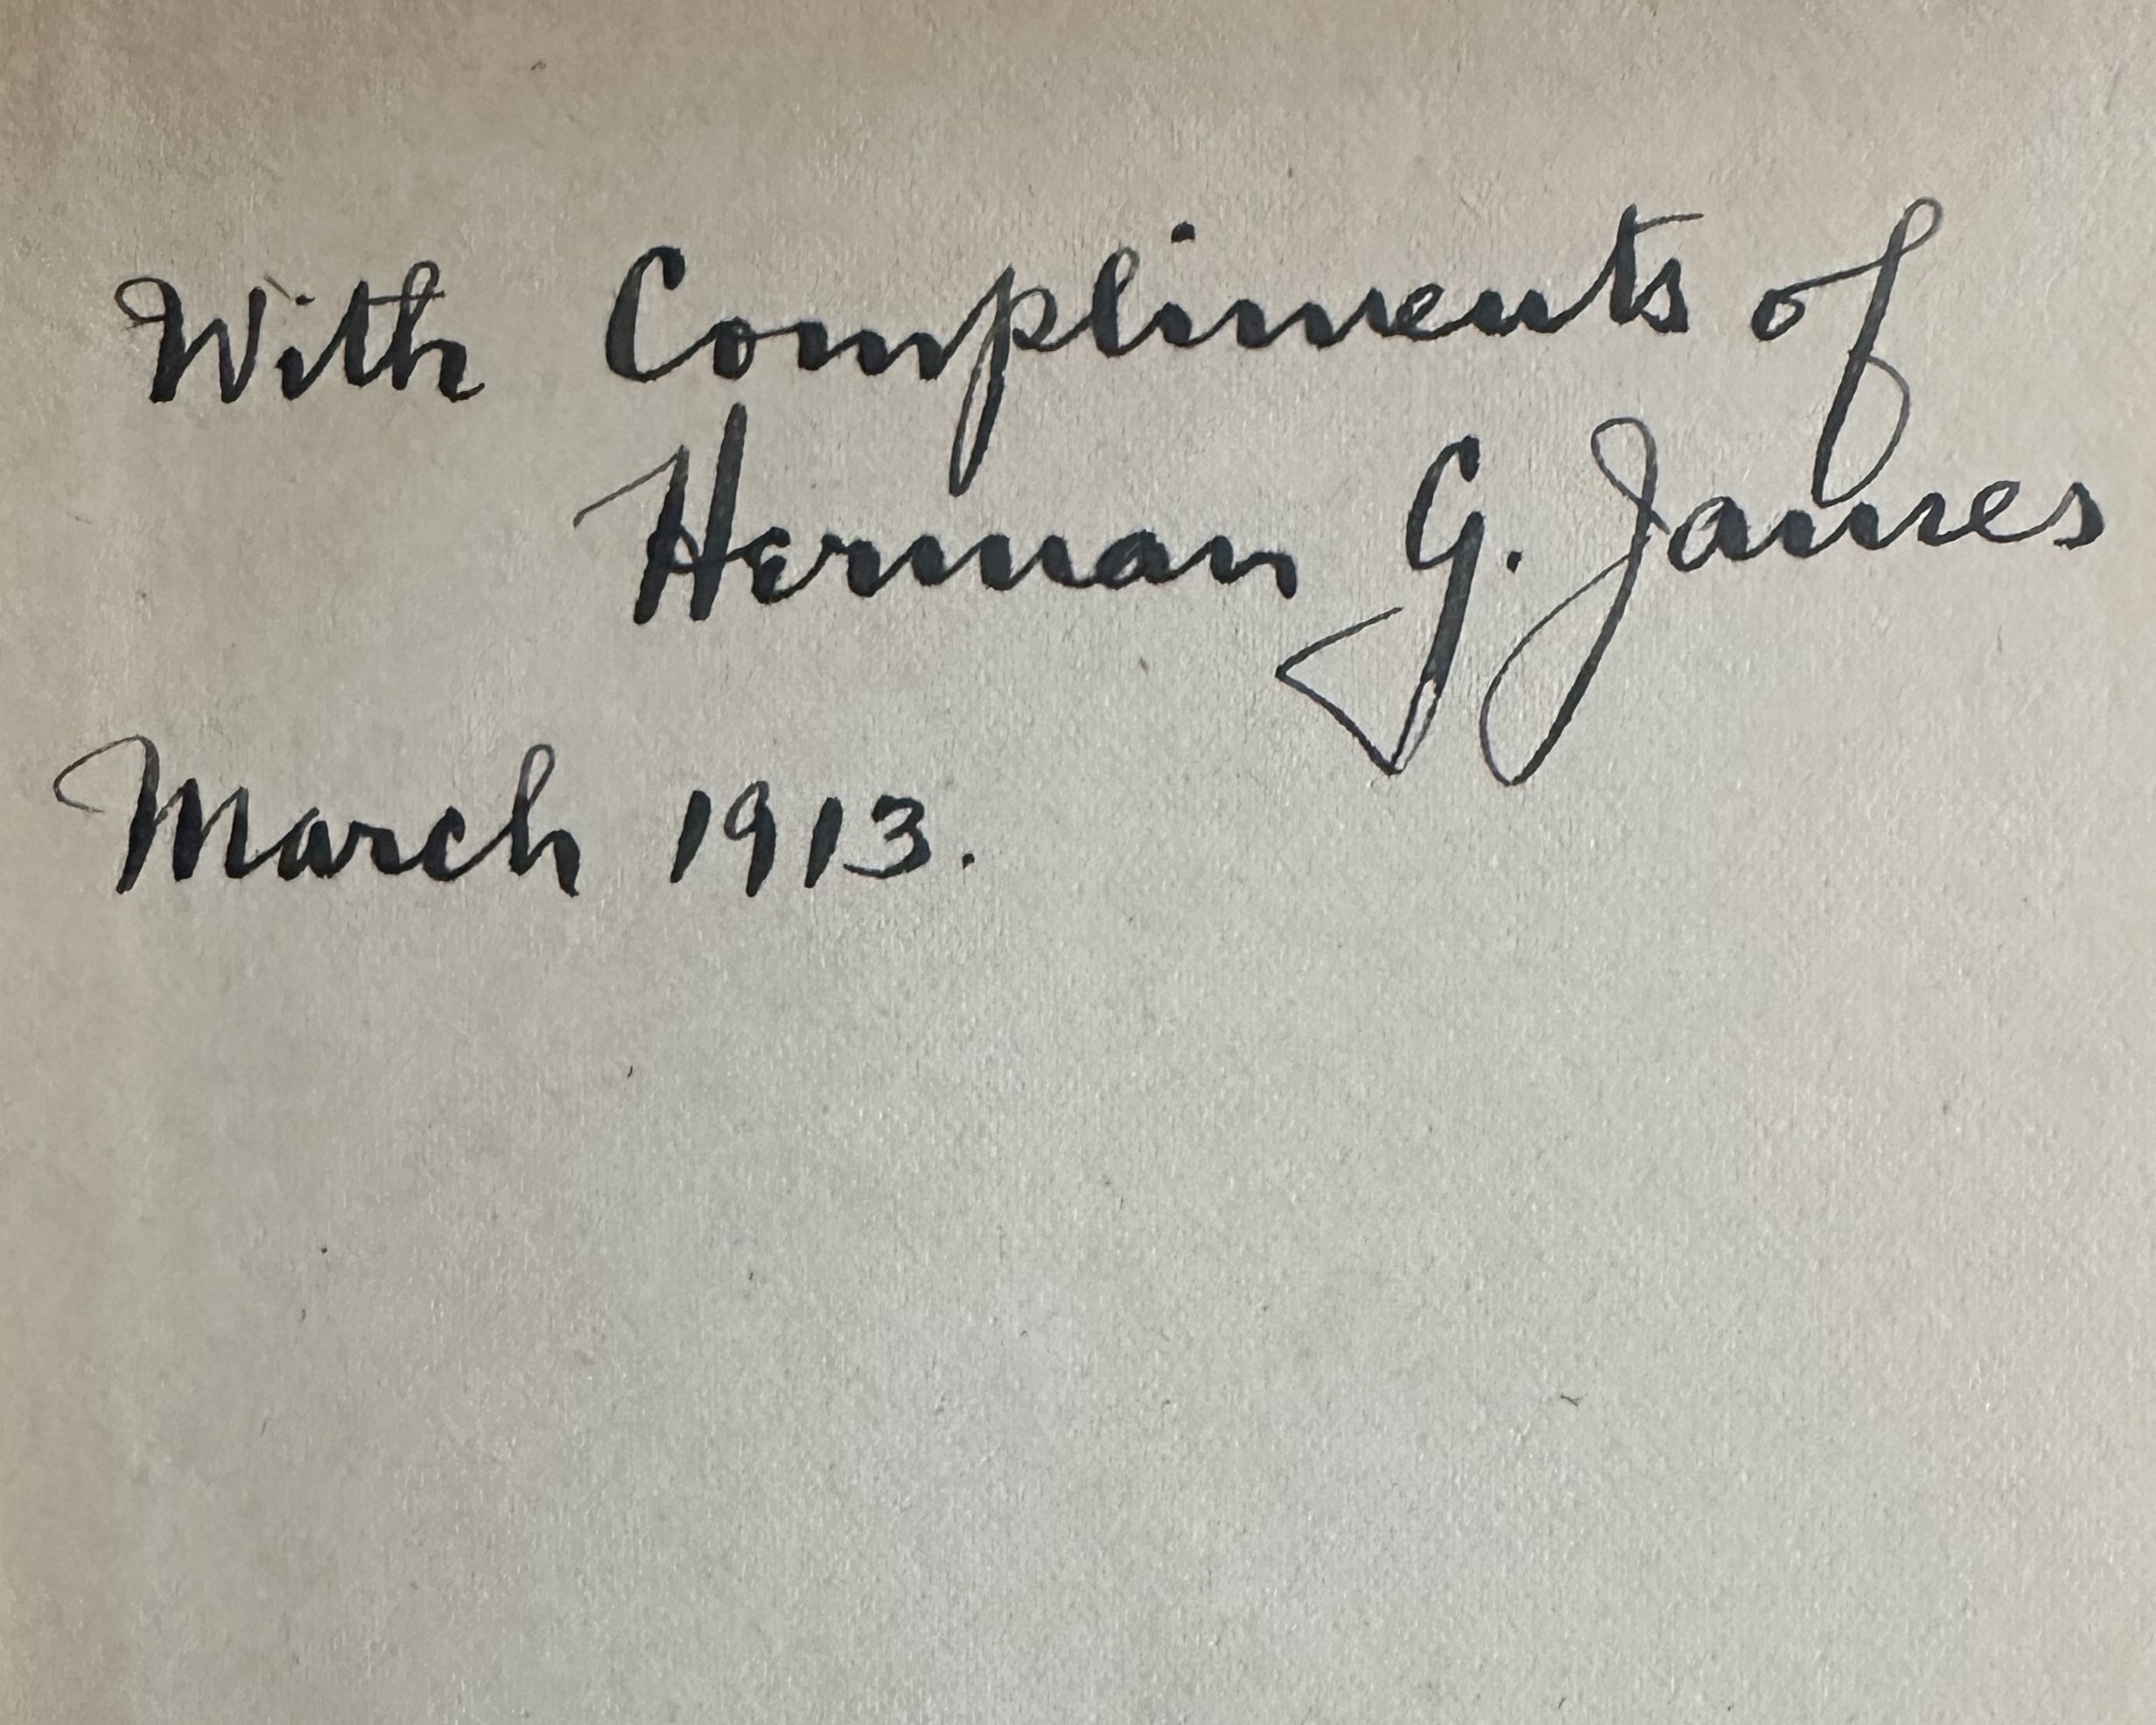 With Compliments of
Herman G. James
March 1913.